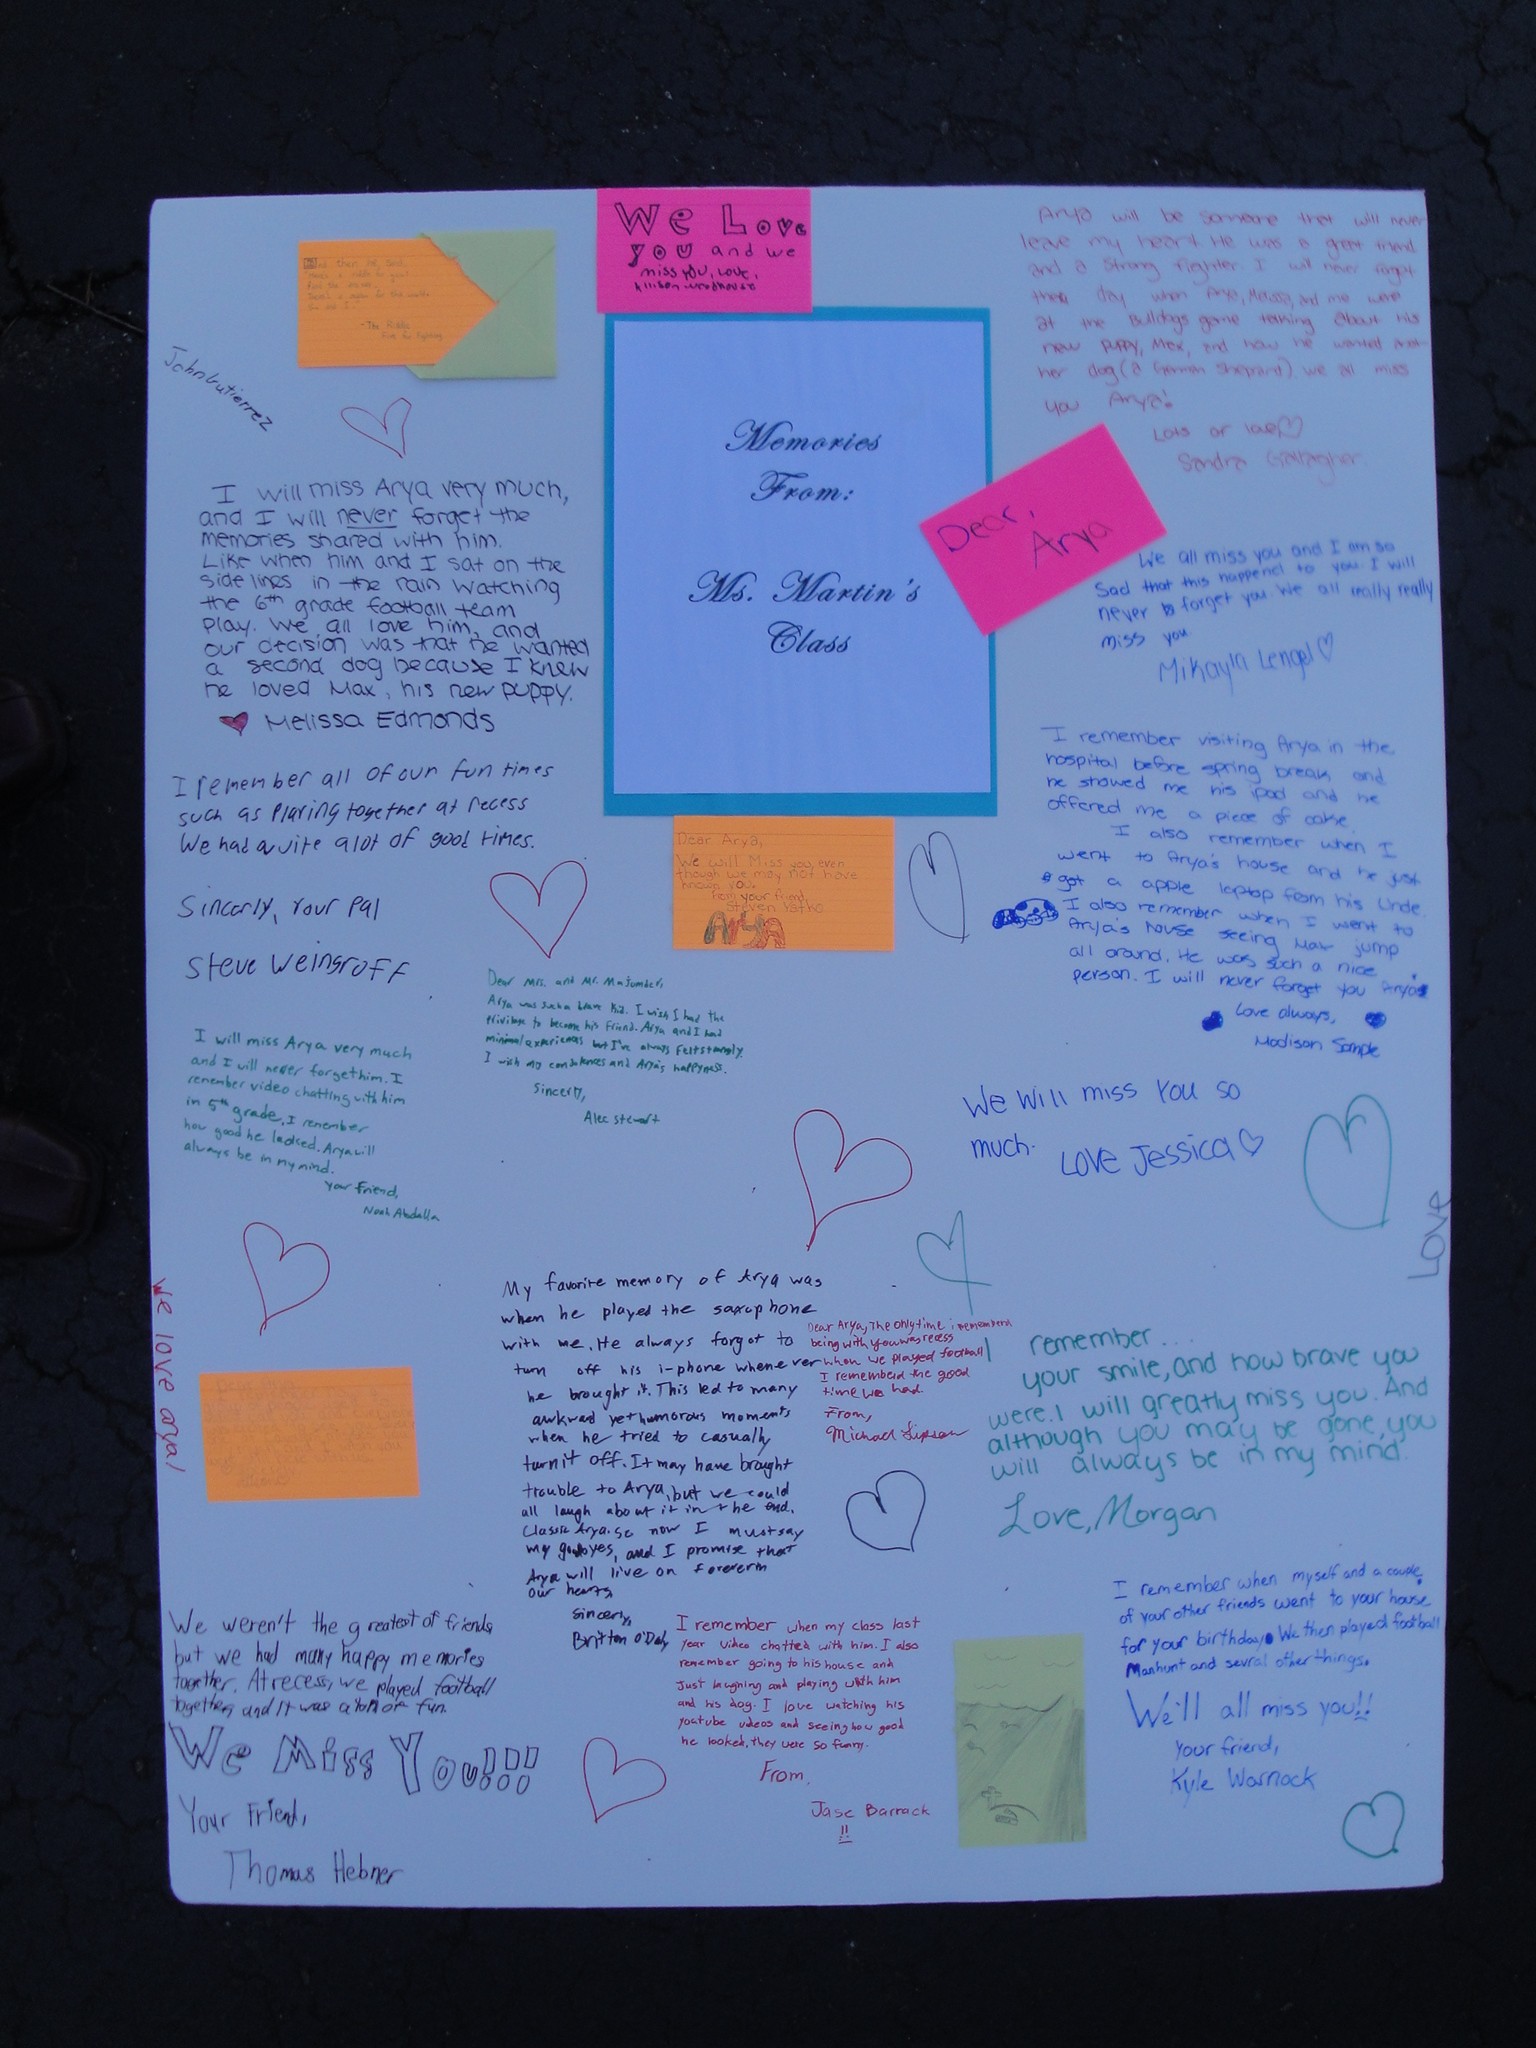 We Love
you and we
miss you, Love,
Allison Woodhouse
And then he said
"Here's a riddle for you"
find the answer
"There's a reason for the world
you and I"
- The Riddle
Five for Fighting
John Gutierrez
Arya will be someone that will never
leave my heart. He was a great friend
and a strong fighter. I will never forget
the day when Arya, Melissa, and me were
at the Bulldogs game talking about his
new puppy, Max, and how he wanted anot-
her dog (a German Shepard). we all miss
you Arya!
Lots or love♡
Sandra Gallagher
Memories
From:
Ms. Martin's
Class
Dear,
Arya
I will miss Arya very much,
and I will never forget the
memories shared with him.
Like when him and I sat on the
side lines in the rain watching
the 6th grade football team
play. We all love him, and
our decision was that he wanted
a second dog because I knew
he loved Max, his new puppy.
Melissa Edmonds
We all miss you and I am so
Sad that this happened to you. I will
never forget you We all really really
miss you
Mikayla Lengel♡
I remember visiting Arya in the
hospital before spring break and
he showed me his ipod and he
offered me a piece of cake.
I also remember when I
went to Arya's house and he just
got a apple laptop from his Uncle.
I also remember when I went to
Arya's house seeing Max jump
all around. He was such a nice
person. I will never forget you Arya
Love always,
Madison Sample
I remember all of our fun times
such as Playing together at recess
We had quite alot of good times.
Sincerly, Your Pal
Steve Weingroff
Dear Arya,
We will Miss you, even
though we may not have
known you.
From your friend,
Steven
Arya
Dear Mrs. and Mr. Majumder,
Arya was such a brave kid. I wish I had the
privilage to become his friend. Arya and I had
minimal experiences but I've always felt strongly.
I wish my condolences and Arya's happyness.
Sincerly,
Alec Stewart
I will miss Arya very much
and I will never forget him. I
remember video chatting with him
in 5th grade, I remember
how good he looked. Arya will
always be in my mind.
Your friend,
Noah Abdalla
We will miss You so
much.
Love Jessica♡
LOVE
We love arya!
My favorite memory of Arya was
when he played the saxophone
with me. He always forgot to
turn off his i-phone whenever
he brought it. This led to many
awkward yet humorous moments
when he tried to casually
turn it off. It may have brought
trouble to Arya, but we could
all laugh about it in the end.
Classic Arya. So now I must say
my goodbyes, and I promise that
Arya will live on forever in
our hearts
Sincerly,
Britton O'Daly
Dear Arya, The only time i rememberd
being with you was recess
when we played football
I rememberd the good
time we had.
From,
Michael Lipson
I remember...
your smile, and how brave you
were. I will greatly miss you. And
although you may be gone, you
will always be in my mind.
Love, Morgan
We weren't the greatest of friends
but we had many happy memories
together. At recess, we played football
together, and it was a ton of fun.
We Miss You!!!
Your Friend,
Thomas Hebner
I remember when my class last
year video chatted with him. I also
remember going to his house and
Just laughing and playing with him
and his dog. I love watching his
youtube videos and seeing how good
he looked, they were so funny.
From,
Jase Barrack
!!
I remember when myself and a couple
of your other friends went to your house
for your birthday. We then played football
Manhunt and sevral other things.
We'll all miss you!!
Your friend,
Kyle Warnock